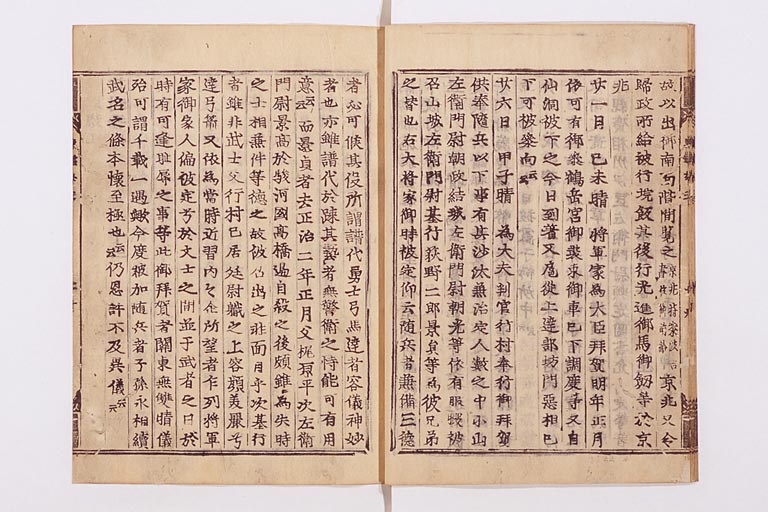 故以出御南面階間覧之 京兆又令
歸政所給被行境飯其後行光進御馬御釼等於京
兆
廿一日己未晴將軍家爲大臣拜賀明年正月
依可有御參鶴岳宮御裝束御車已下調度等又自
仙洞被下之今日到着又扈從上達部坊門亞相已
下可被參向云々
廿六日甲子晴爲大夫判官行村奉行御拜賀
供奉隨兵以下事有其沙汰兼治定人數之中小山
左衛門尉朝政結城左衛門尉朝光等依有服暇被
召山城左衛門尉基行荻野二郎景員等爲彼兄弟
之替也右大將家御時被定仰云隨兵者兼備三德
者必可候其役所謂譜代勇士弓馬達者容儀神妙
者也亦雖譜代於疎其藝者無警衛之恃能可有用
意云々而景員者去正治二年正月父梶原平次左衛
門尉景高於駿河國高橋過自殺之後頗雖爲失時
之士相兼件等德之故被召出之壯面月乎次基行
者雖非武士父行村已居廷尉職之上容顏美麗兮
達弓箭又依爲當時近習内々有所望者乍列將軍
家御家人偏被定号於文士之間並于武者之日於
時有可逢耻辱之事等此御拜賀者關東無雙晴儀
殆可謂千載一遇歟今度被加隨兵者子孫永相續
武名之條本懷至極也云々仍恩許不及異儀云々